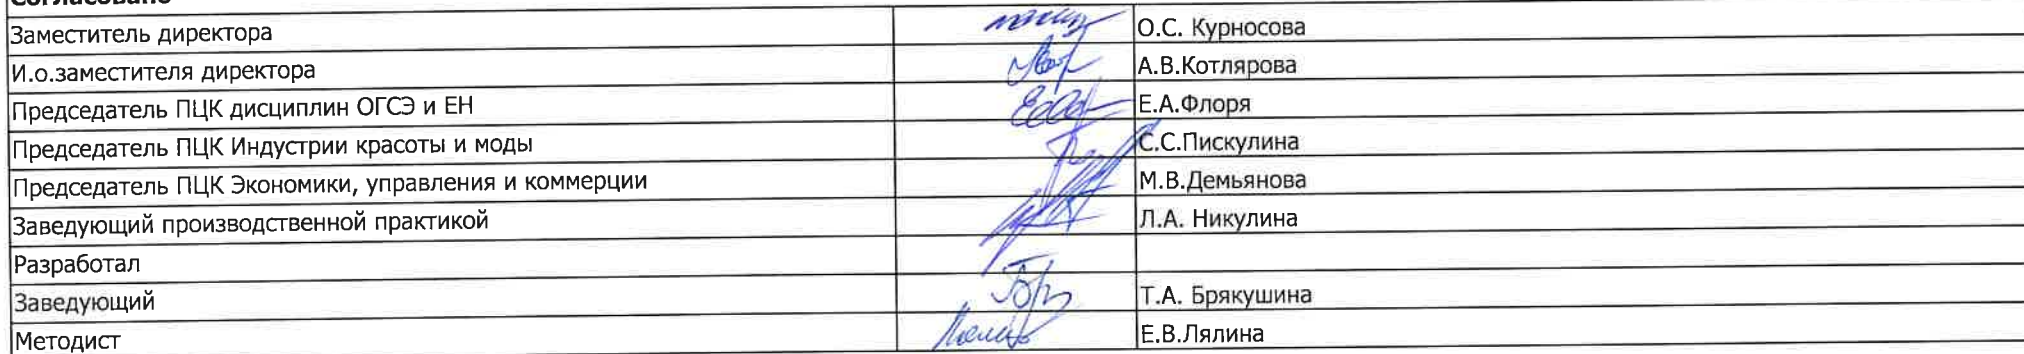 Согласовано
Заместитель директора О.С. Курносова
И.о.заместителя директора А.В.Котлярова
Председатель ПЦК дисциплин ОГСЭ и ЕН Е.А.Флоря
Председатель ПЦК Индустрии красоты и моды С.С.Пискулина
Председатель ПЦК Экономики, управления и коммерции М.В.Демьянова
Заведующий производственной практикой Л.А. Никулина
Разработал
Заведующий Т.А. Брякушина
Методист Е.В.Лялина